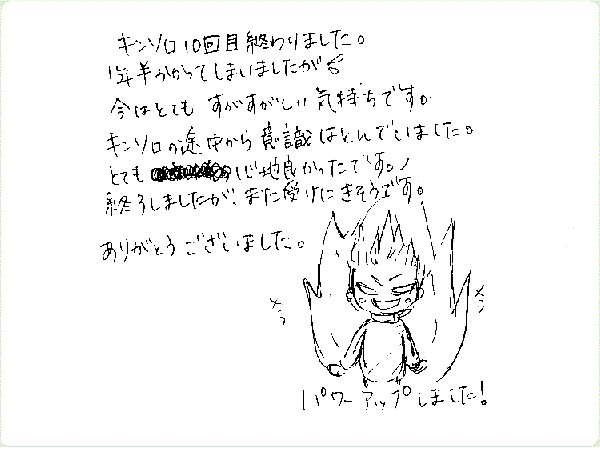 キンソロ10回目終わりました。
1年半かかってしまいましたが
今はとても すがすがしい気持ちです。
キンソロの途中から意識はとんでいました。
とても 心地良かったです。
終了しましたが、また受けにきそうです。
ありがとうございました。
メラ
メラ
パワーアップしました!